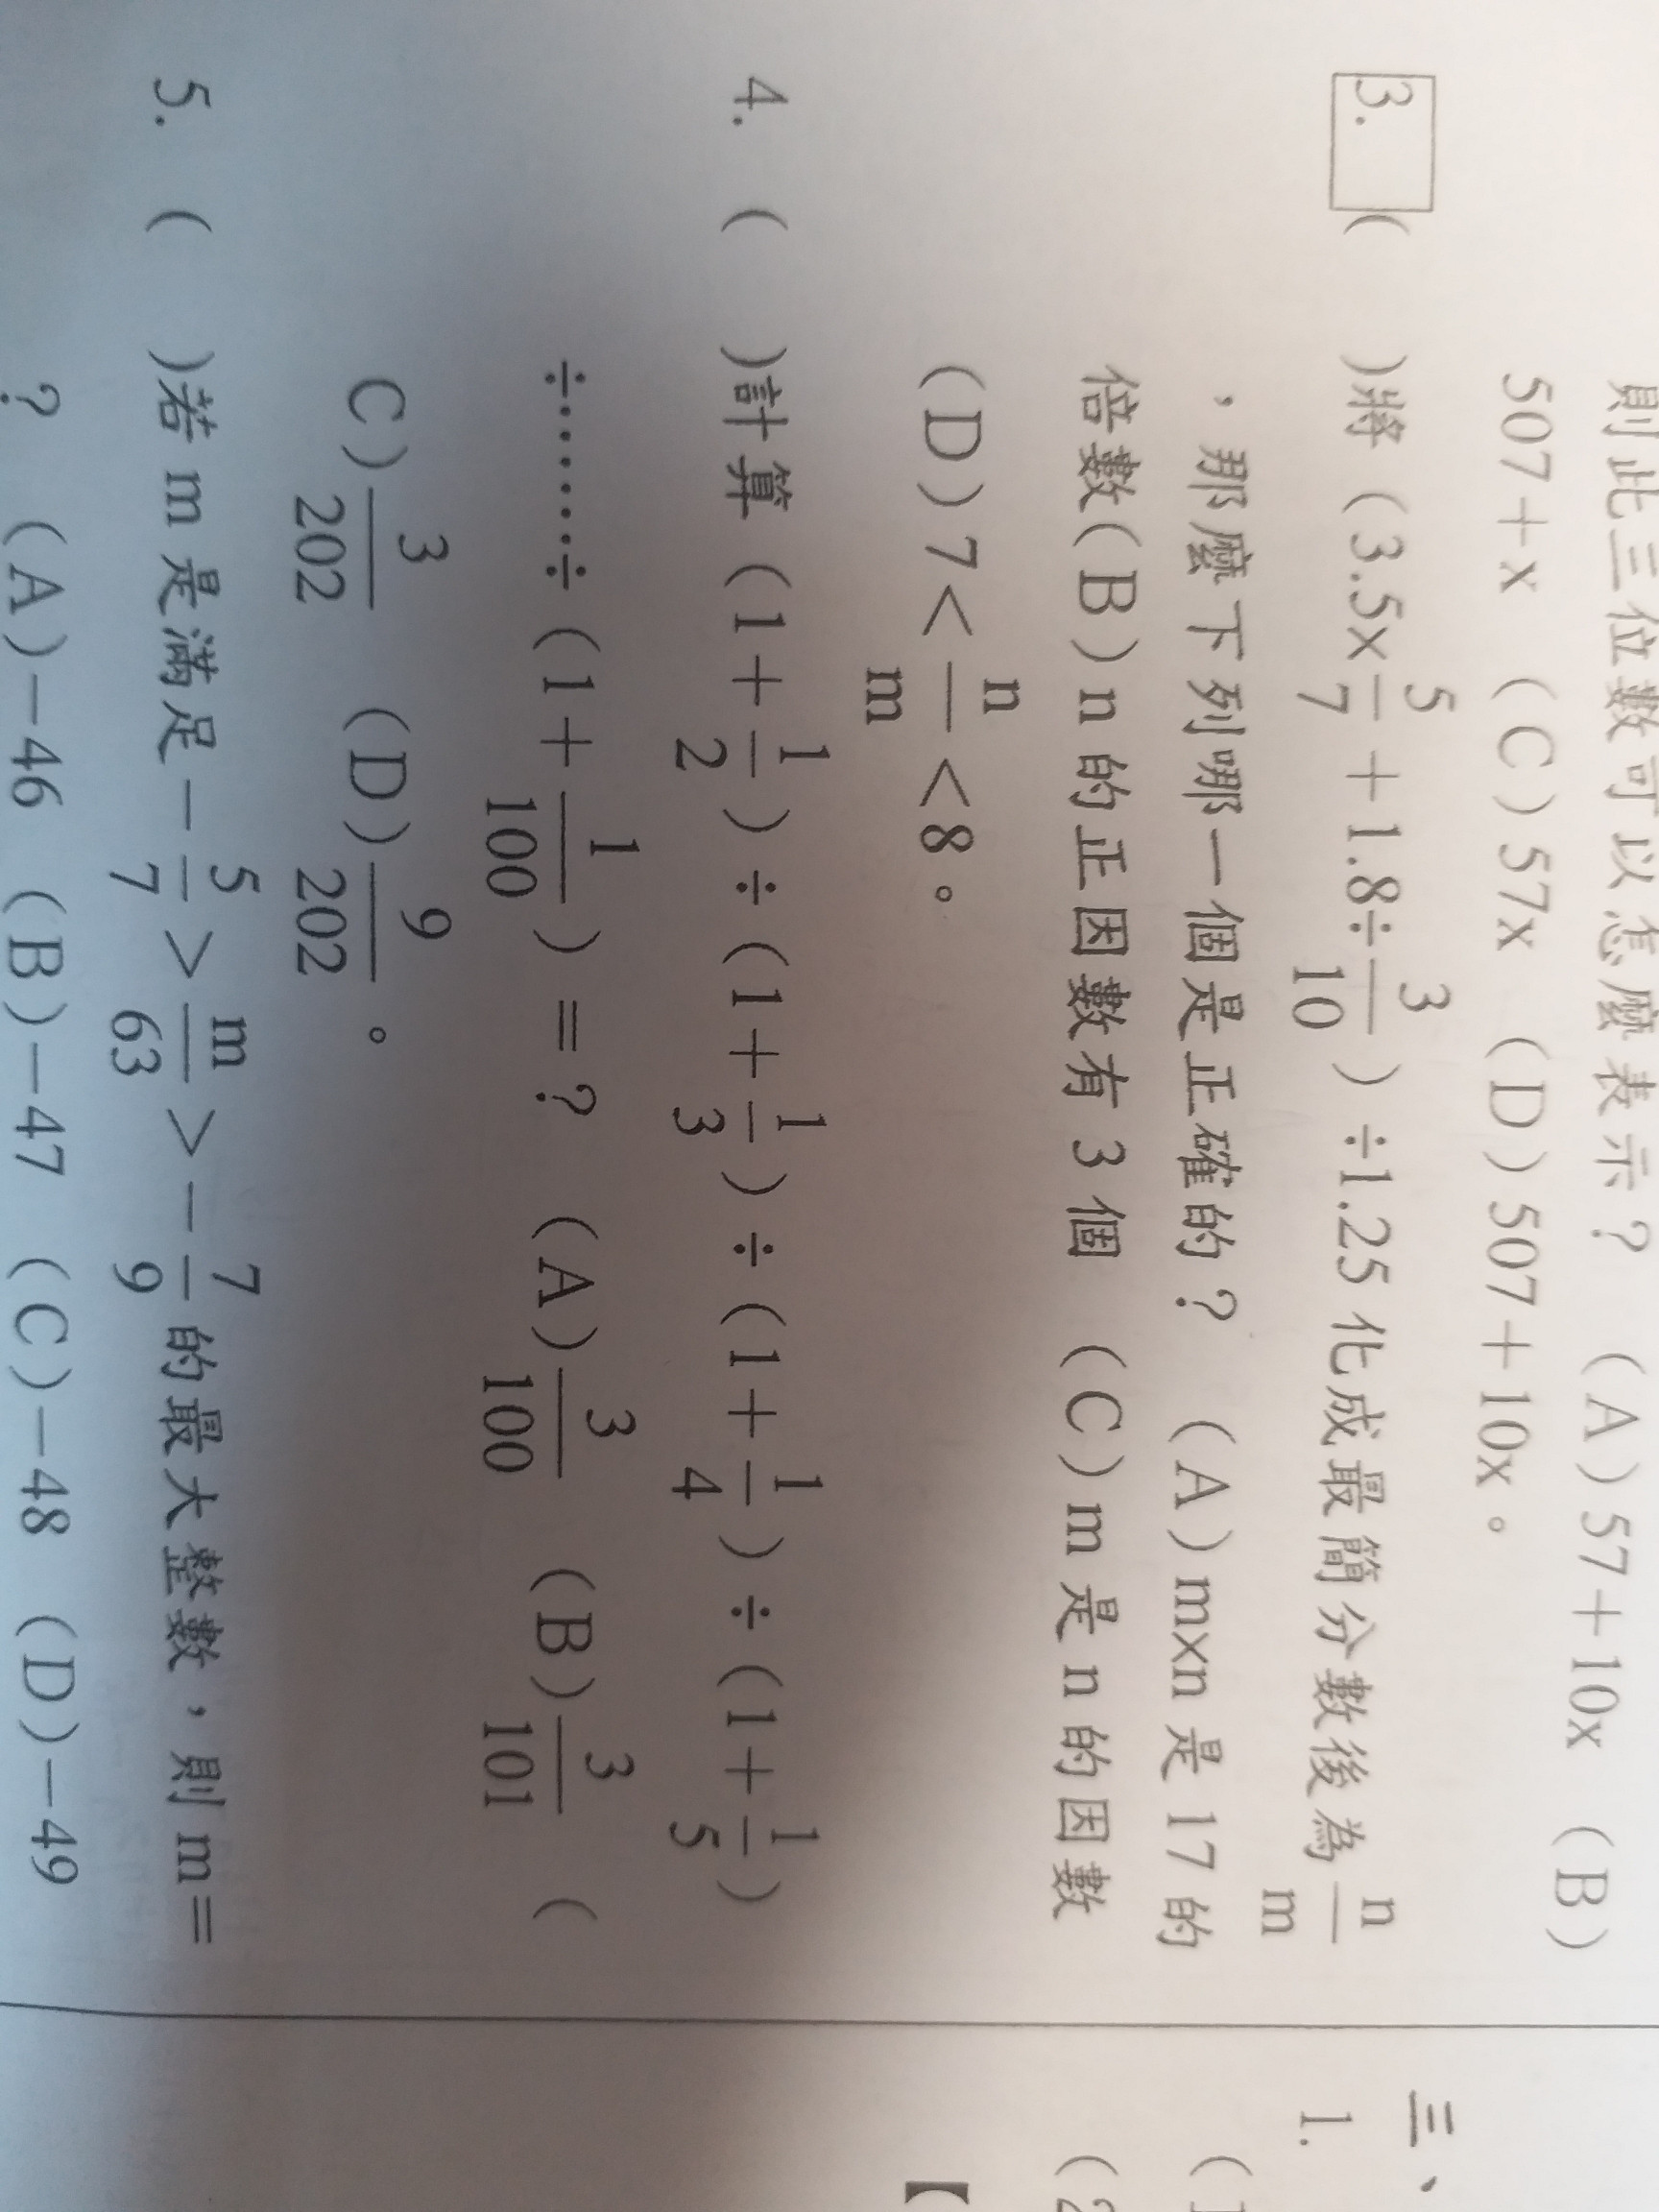 則此三位數可以怎麼表示？ (A)57+10x (B)
507+x (C)57x (D)507+10x。
3. ( )將（3.5×5/7+1.8÷3/10）÷1.25化成最簡分數後為n/m
，那麼下列哪一個是正確的？ (A)m×n是17的
倍數(B)n的正因數有3個 (C)m是n的因數
(D)7<n/m<8。
4. ( )計算（1+1/2）÷（1+1/3）÷（1+1/4）÷（1+1/5）
÷……÷（1+1/100）=？ (A)3/100 (B)3/101 (
C)3/202 (D)9/202。
5. ( )若m是滿足-5/7>m/63>-7/9的最大整數，則m=
？ (A)-46 (B)-47 (C)-48 (D)-49
三、
1.
(1
(2
【